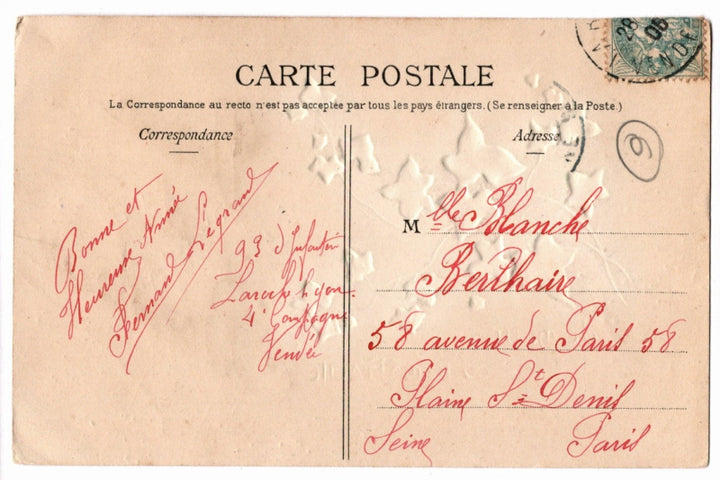 CARTE POSTALE
La Correspondance au recto n'est pas acceptée par tous les pays étrangers. (Se renseigner à la Poste.)
Correspondance
Adresse
28
06
VENDÉE
6
Bonne et
Heureuse Année
Fernand Legrand
93 d'Infanterie
4e Compagnie
Vendée
Mlle Blanche
Berthaire
58 avenue de Paris 58
Plaine St Denis
Seine Paris